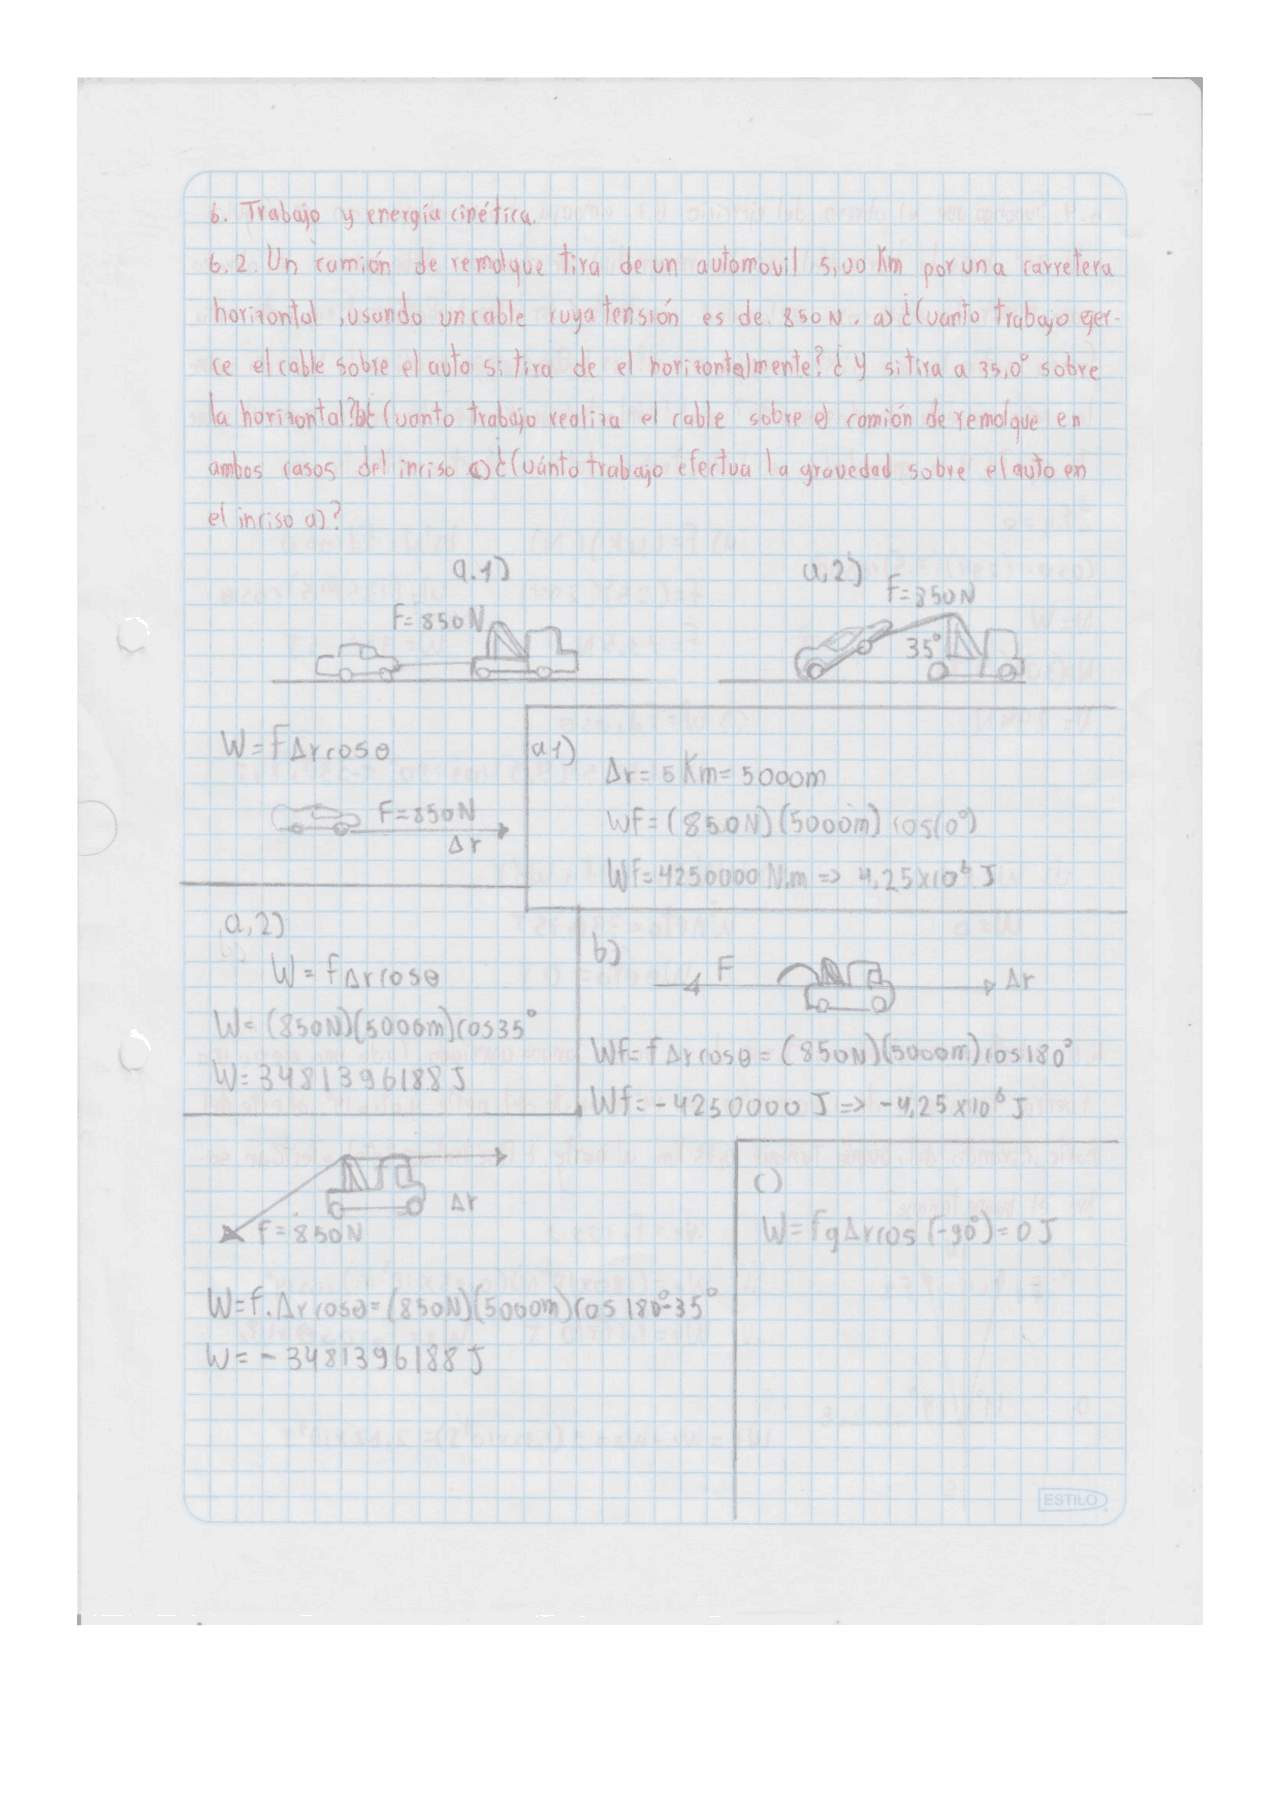 6. Trabajo y energía cinética.
6.2. Un camión de remolque tira de un automovil 5,00 Km por una carretera
horizontal, usando un cable cuya tensión es de 850N. a) ¿Cuanto trabajo ejer-
ce el cable sobre el auto si tira de el horizontalmente? ¿Y si tira a 35,0° sobre
la horizontal? b) ¿Cuanto trabajo realiza el cable sobre el camión de remolque en
ambos casos del inciso a) ¿Cuánto trabajo efectua la gravedad sobre el auto en
el inciso a)?
a.1)
F=850N
a,2)
F=850N
35°
W=FΔrcosθ
F=850N
Δr
a1)
Δr= 5 Km= 5000m
WF=(850N)(5000m) cos(0°)
WF=4250000 N.m => 4,25x10⁶ J
a,2)
W = fΔrcosθ
W=(850N)(5000m)cos35°
W=3481396188J
b)
F
Δr
WF=fΔrcosθ=(850N)(5000m)cos180°
WF=-4250000 J => -4,25x10⁶J
Δr
F=850N
W=f.Δrcosθ=(850N)(5000m)cos180°-35°
W=-3481396188J
c)
W=fgΔrcos(-90°)=0J
ESTILO